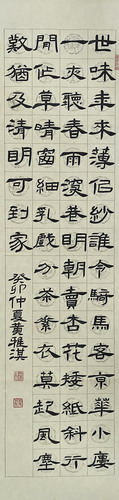 世味年来薄似纱誰令騎馬客京華小廔
一夜聽春雨深巷明朝賣杏花矮紙斜行
閒作草晴窗細乳戲分茶素衣莫起風塵
歎猶及清明可到家
癸卯仲夏黄雅淇